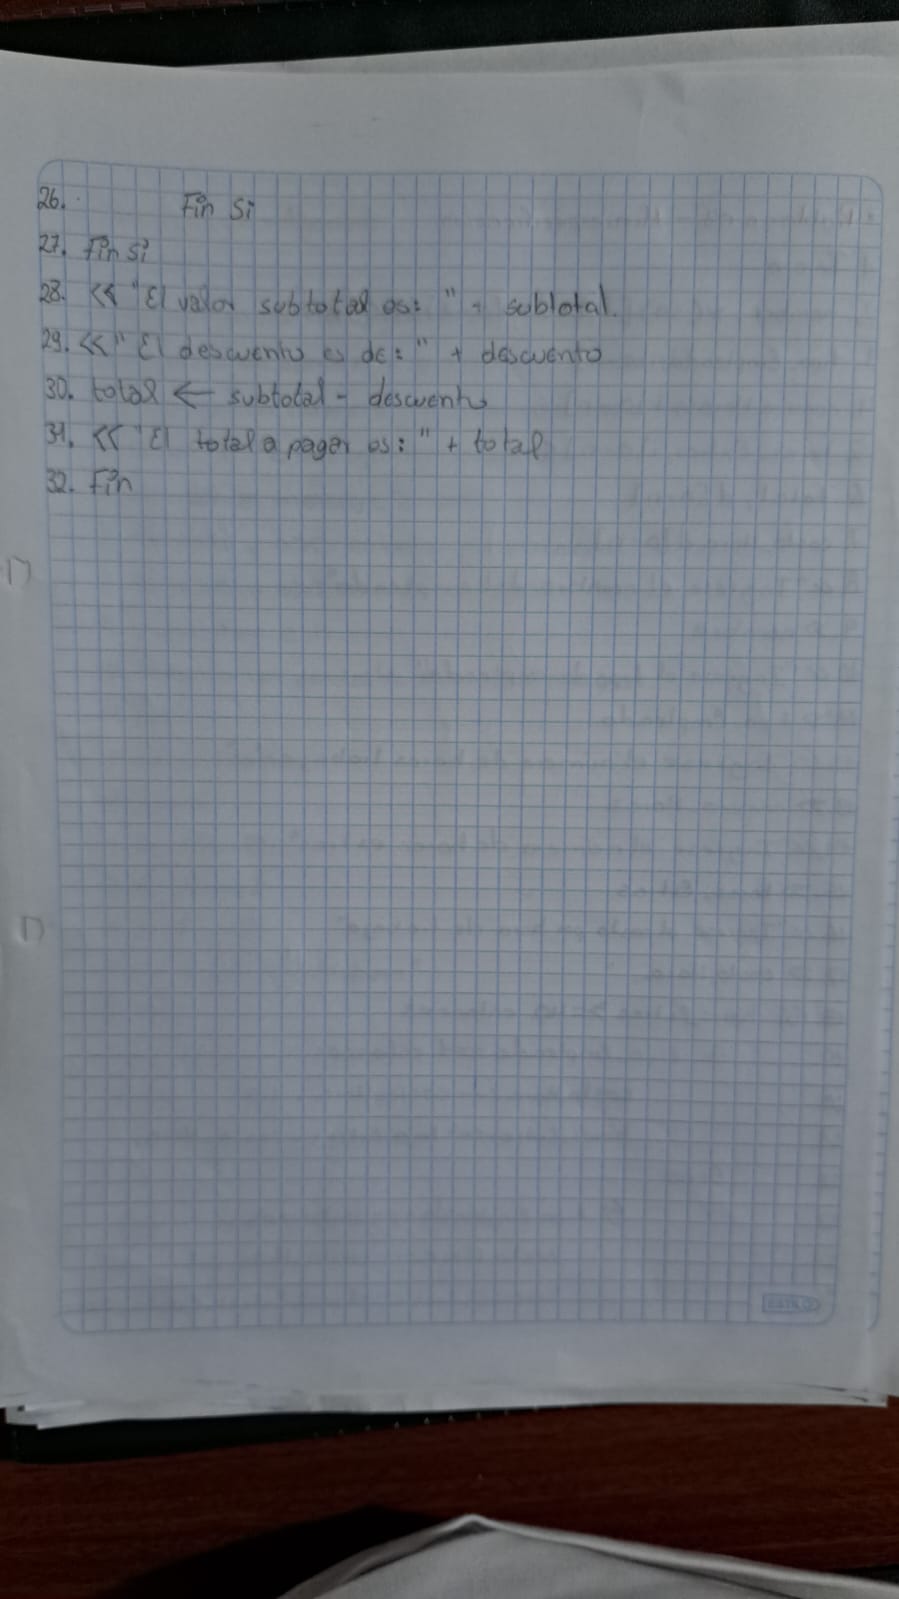 26. Fin Si
27. Fin si
28. << "El valor subtotal es: " + subtotal.
29. << "El descuento es de: " + descuento
30. total ← subtotal - descuento
31. << "El total a pagar es: " + total
32. Fin